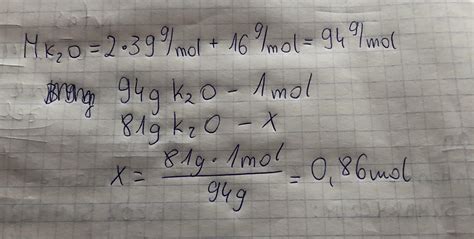 MK₂O = 2·39 g/mol + 16 g/mol = 94 g/mol
94g K₂O – 1mol
81g K₂O – X
X = 81g · 1mol / 94g = 0,86mol